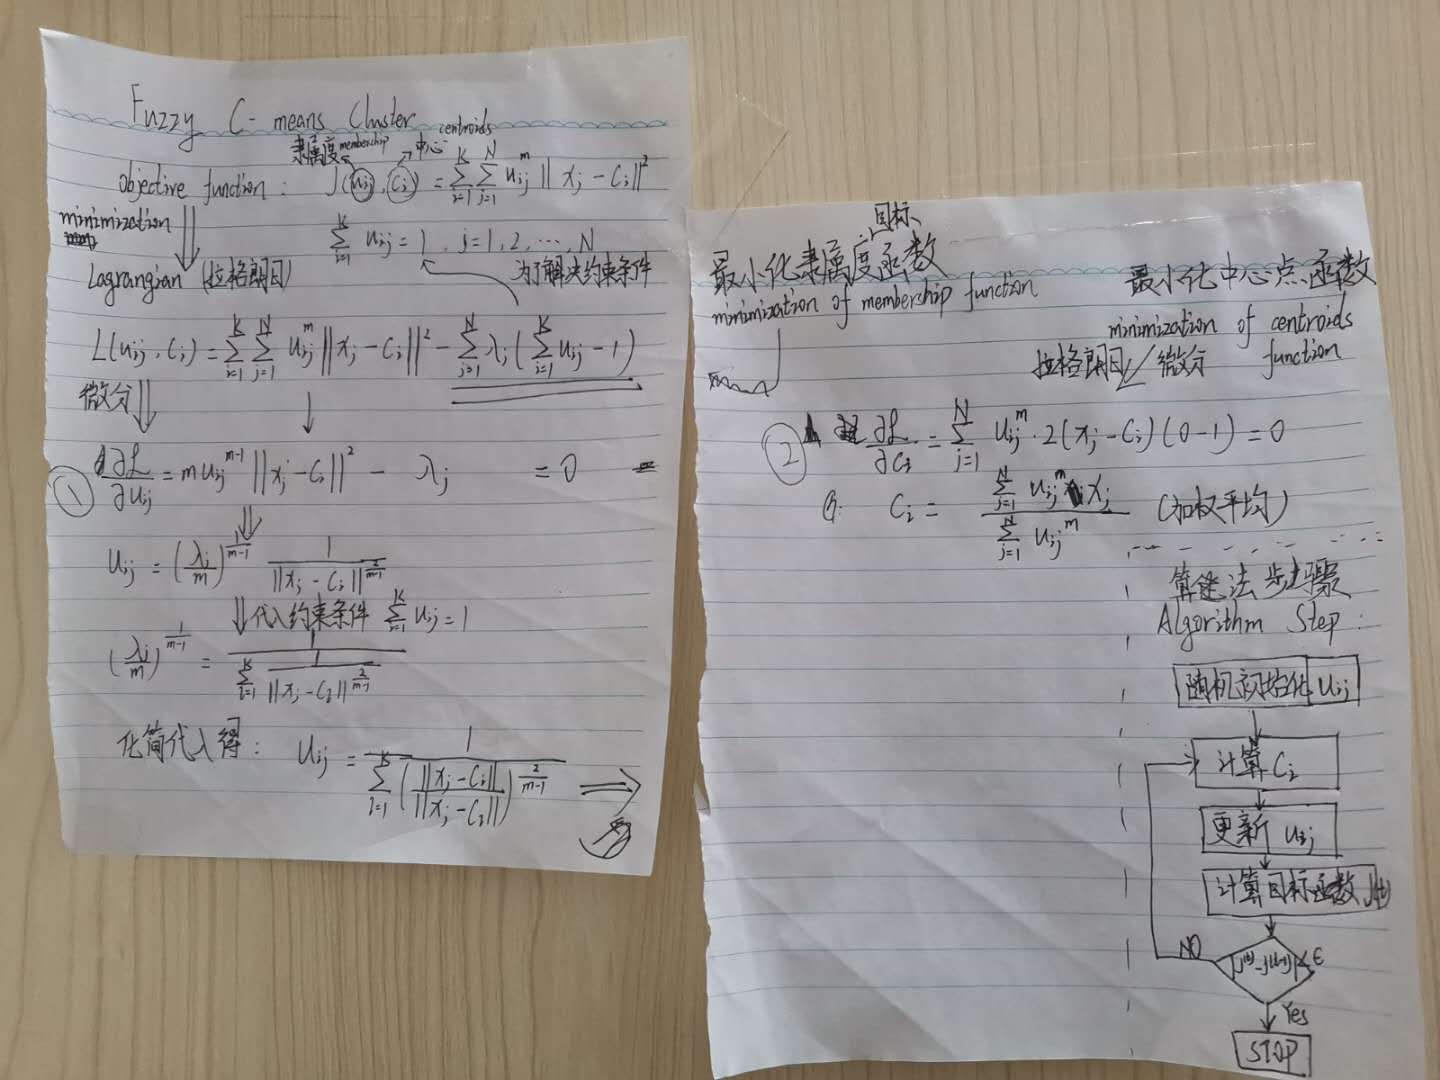 Fuzzy C-means Cluster
隶属度 membership 中心 centroids
objective function: J(uij, ci) = Σ_{i=1}^{K} Σ_{j=1}^{N} uij^m ||xj - ci||^2
minimization
Σ_{i=1}^{K} uij = 1, j=1,2,...,N
Lagrangian (拉格朗日) 为了解决约束条件
L(uij, ci) = Σ_{i=1}^{K} Σ_{j=1}^{N} uij^m ||xj - ci||^2 - Σ_{j=1}^{N} λj (Σ_{i=1}^{K} uij - 1)
微分
① ∂L/∂uij = m uij^{m-1} ||xj - ci||^2 - λj = 0
uij = (λj/m)^{1/(m-1)} 1/||xj - ci||^{2/(m-1)}
代入约束条件 Σ_{i=1}^{K} uij = 1
(λj/m)^{1/(m-1)} = 1/(Σ_{i=1}^{K} 1/||xj - ci||^{2/(m-1)})
化简代入得: uij = 1/(Σ_{l=1}^{K} (||xj - ci||/||xj - ci||)^{2/(m-1)})
目标
最小化隶属度函数
minimization of membership function
最小化中心点函数
minimization of centroids
function
拉格朗日 微分
② ∂L/∂ci = Σ_{j=1}^{N} uij^m · 2(xj - ci)(0-1) = 0
ci = Σ_{j=1}^{N} uij^m xj / Σ_{j=1}^{N} uij^m (加权平均)
算法步骤
Algorithm Step:
随机初始化 uij
计算 ci
更新 uij
计算目标函数 J(t)
NO |J(t) - J(t-1)| < ε
Yes
STOP